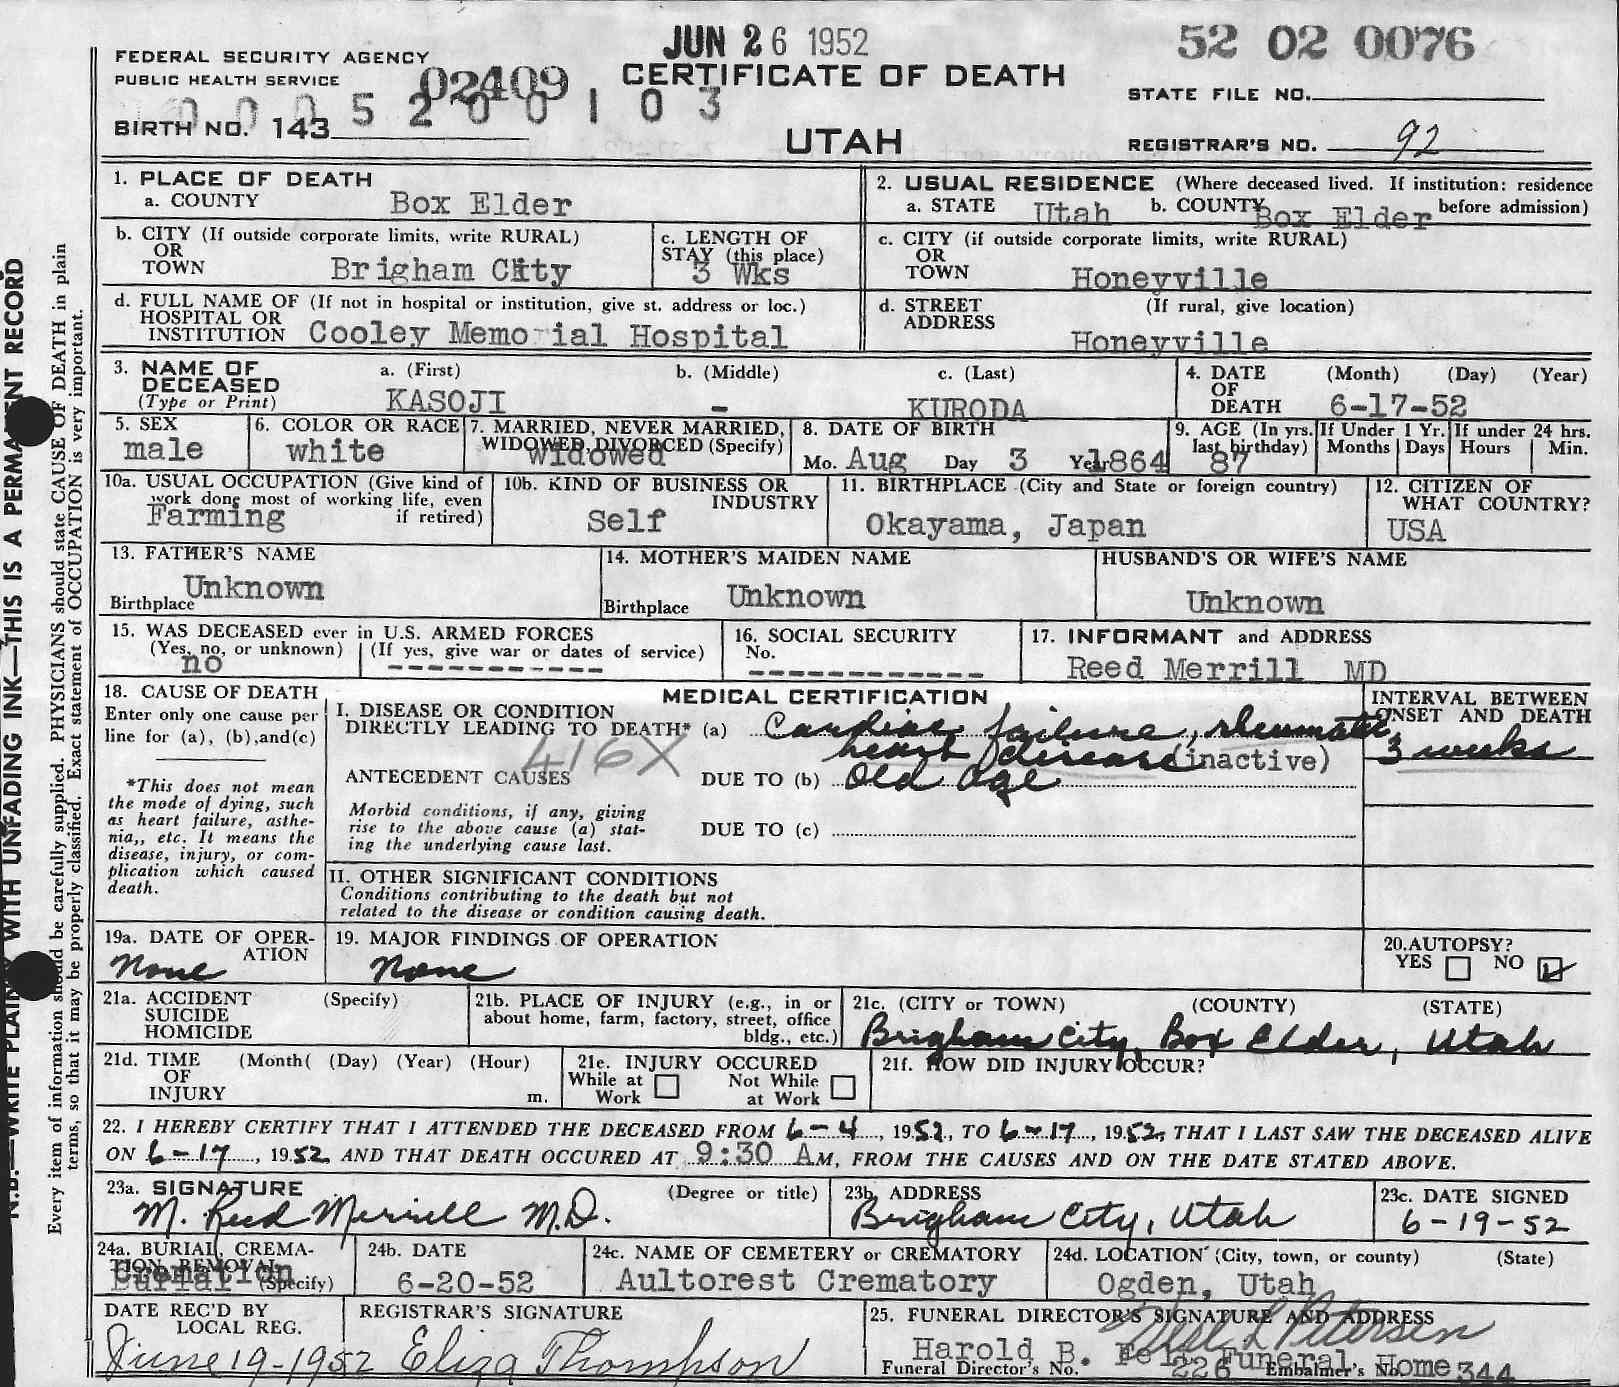 JUN 26 1952
52 02 0076
FEDERAL SECURITY AGENCY
PUBLIC HEALTH SERVICE
02409
CERTIFICATE OF DEATH
STATE FILE NO.
0 0 0 5 2 0 0 1 0 3
BIRTH NO. 143
UTAH
REGISTRAR'S NO. 92
1. PLACE OF DEATH
a. COUNTY Box Elder
2. USUAL RESIDENCE (Where deceased lived. If institution: residence before admission)
a. STATE Utah b. COUNTY Box Elder
b. CITY (If outside corporate limits, write RURAL)
OR
TOWN Brigham City
c. LENGTH OF
STAY (this place)
3 Wks
c. CITY (if outside corporate limits, write RURAL)
OR
TOWN Honeyville
d. FULL NAME OF (If not in hospital or institution, give st. address or loc.)
HOSPITAL OR
INSTITUTION Cooley Memorial Hospital
d. STREET (If rural, give location)
ADDRESS
Honeyville
3. NAME OF
DECEASED
(Type or Print)
a. (First) b. (Middle) c. (Last)
KASOJI - KURODA
4. DATE (Month) (Day) (Year)
OF
DEATH 6-17-52
5. SEX
male
6. COLOR OR RACE
white
7. MARRIED, NEVER MARRIED,
WIDOWED, DIVORCED (Specify)
Widowed
8. DATE OF BIRTH
Mo. Aug Day 3 Year 1864
9. AGE (In yrs. last birthday)
87
If Under 1 Yr.
Months Days
If under 24 hrs.
Hours Min.
10a. USUAL OCCUPATION (Give kind of
work done most of working life, even
if retired)
Farming
10b. KIND OF BUSINESS OR
INDUSTRY
Self
11. BIRTHPLACE (City and State or foreign country)
Okayama, Japan
12. CITIZEN OF
WHAT COUNTRY?
USA
13. FATHER'S NAME
Unknown
Birthplace
14. MOTHER'S MAIDEN NAME
Unknown
Birthplace
HUSBAND'S OR WIFE'S NAME
Unknown
15. WAS DECEASED ever in U.S. ARMED FORCES
(Yes, no, or unknown) (If yes, give war or dates of service)
no ------------
16. SOCIAL SECURITY
No.
-------------
17. INFORMANT and ADDRESS
Reed Merrill MD
18. CAUSE OF DEATH
Enter only one cause per
line for (a), (b),and(c)
*This does not mean
the mode of dying, such
as heart failure, asthe-
nia,, etc. It means the
disease, injury, or com-
plication which caused
death.
MEDICAL CERTIFICATION
INTERVAL BETWEEN
ONSET AND DEATH
I. DISEASE OR CONDITION
DIRECTLY LEADING TO DEATH* (a) Cardiac failure, rheumatic
heart disease (inactive)
3 weeks
416X
ANTECEDENT CAUSES
DUE TO (b) Old age
Morbid conditions, if any, giving
rise to the above cause (a) stat-
ing the underlying cause last.
DUE TO (c)
II. OTHER SIGNIFICANT CONDITIONS
Conditions contributing to the death but not
related to the disease or condition causing death.
19a. DATE OF OPER-
ATION
None
19. MAJOR FINDINGS OF OPERATION
None
20.AUTOPSY?
YES NO
21a. ACCIDENT (Specify)
SUICIDE
HOMICIDE
21b. PLACE OF INJURY (e.g., in or
about home, farm, factory, street, office
bldg., etc.)
21c. (CITY or TOWN) (COUNTY) (STATE)
Brigham City, Box Elder, Utah
21d. TIME (Month( (Day) (Year) (Hour)
OF
INJURY m.
21e. INJURY OCCURED
While at Work Not While at Work
21f. HOW DID INJURY OCCUR?
22. I HEREBY CERTIFY THAT I ATTENDED THE DECEASED FROM 6-4, 1952, TO 6-17, 1952, THAT I LAST SAW THE DECEASED ALIVE
ON 6-17, 1952 AND THAT DEATH OCCURED AT 9:30 AM, FROM THE CAUSES AND ON THE DATE STATED ABOVE.
23a. SIGNATURE (Degree or title)
M. Reed Merrill M.D.
23b. ADDRESS
Brigham City, Utah
23c. DATE SIGNED
6-19-52
24a. BURIAL, CREMA-
TION, REMOVAL
(Specify)
Cremation
24b. DATE
6-20-52
24c. NAME OF CEMETERY or CREMATORY
Aultorest Crematory
24d. LOCATION (City, town, or county) (State)
Ogden, Utah
DATE REC'D BY
LOCAL REG.
June 19-1952
REGISTRAR'S SIGNATURE
Eliza Thompson
25. FUNERAL DIRECTOR'S SIGNATURE AND ADDRESS
L Petersen
Harold B. Felt Funeral Home
Funeral Director's No. 226 Embalmer's No. 344
N.B.—WRITE PLAINLY WITH UNFADING INK—THIS IS A PERMANENT RECORD
Every item of information should be carefully supplied. PHYSICIANS should state CAUSE OF DEATH in plain
terms, so that it may be properly classified. Exact statement of OCCUPATION is very important.